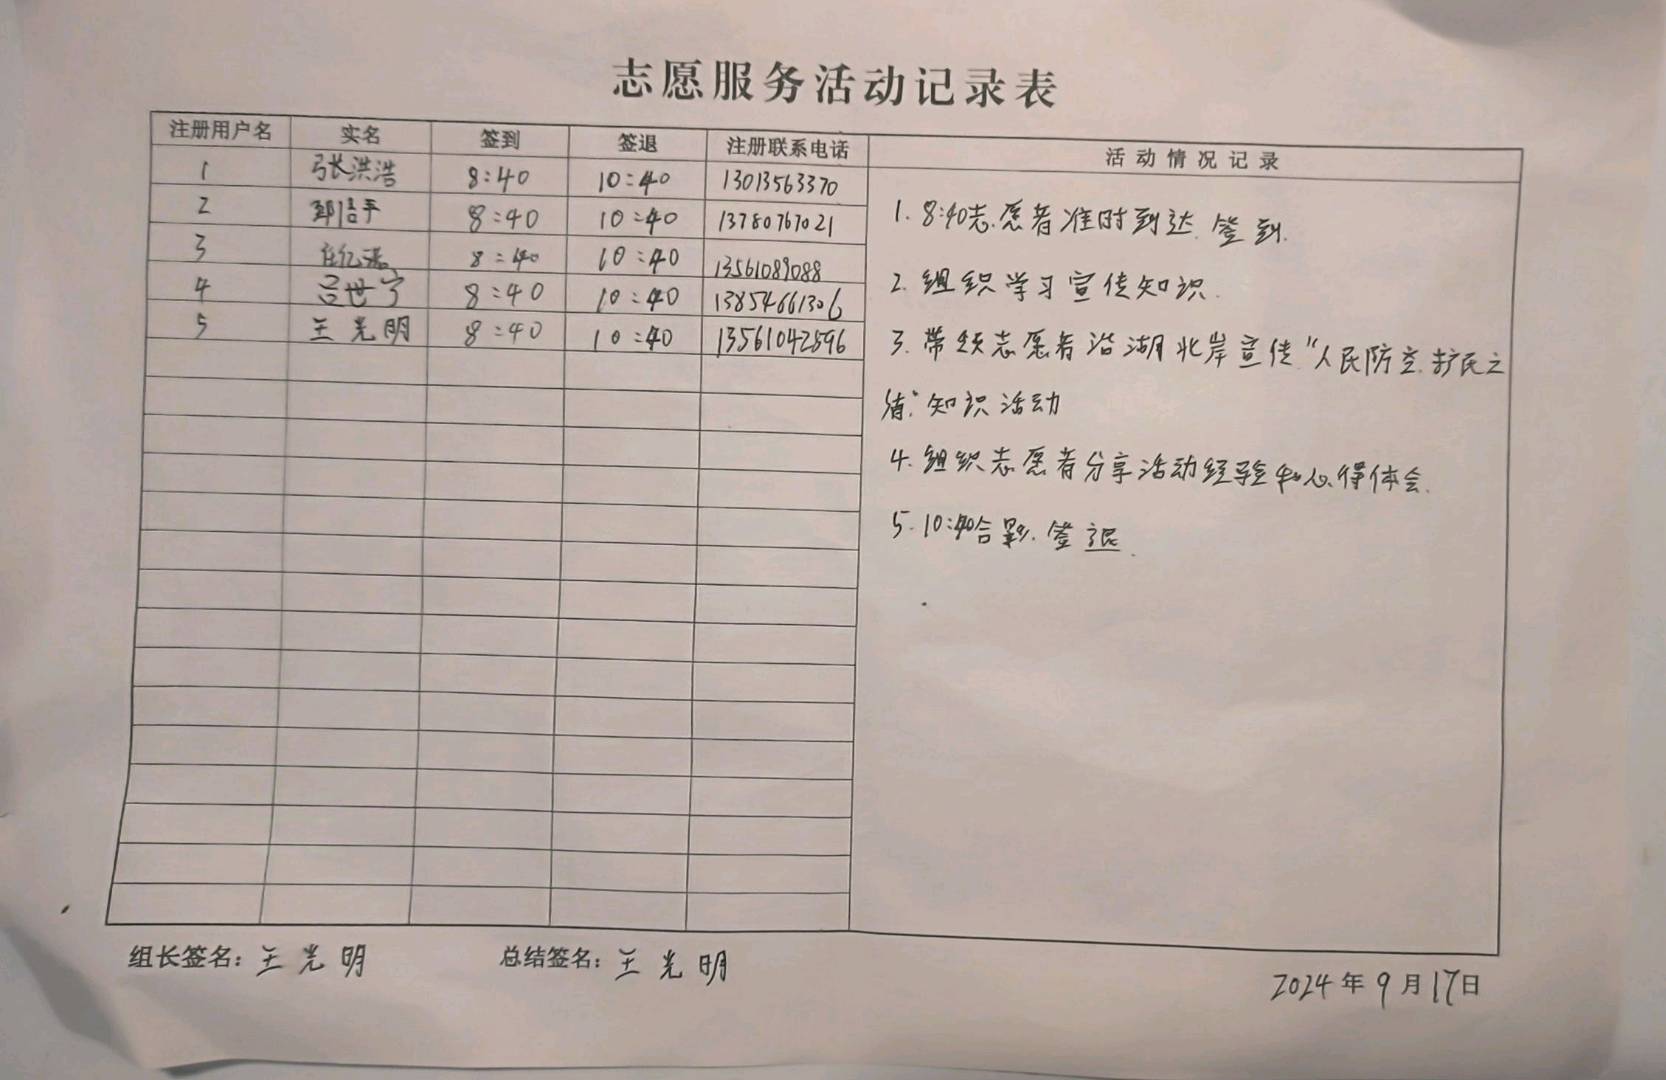 志愿服务活动记录表
注册用户名 实名 签到 签退 注册联系电话 活动情况记录
1 张洪浩 8:40 10:40 13013563370
2 8:40 10:40 13780767021
3 8:40 10:40 13561089088
4 吕世宁 8:40 10:40 13854661306
5 王光明 8:40 10:40 13561042596
1. 8:40志愿者准时到达.签到.
2. 组织学习宣传知识.
3. 带领志愿者沿湖北岸宣传"人民防空.护民之
盾"知识活动
4. 组织志愿者分享活动经验和心得体会.
5. 10:40合影.签退.
组长签名：王光明 总结签名：王光明
2024年9月17日